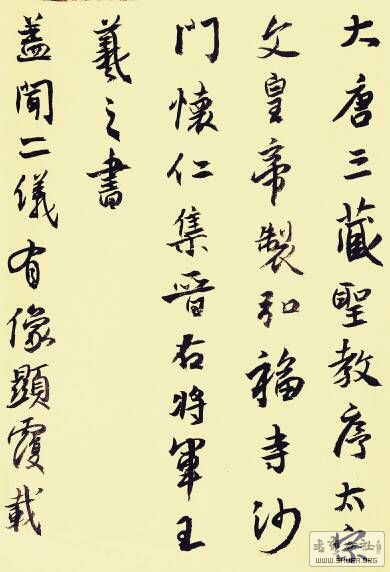 大唐三藏聖教序太宗
文皇帝製弘福寺沙
門懷仁集晉右將軍王
羲之書
蓋聞二儀有像顯覆載
WWW.SHUFA.ORG